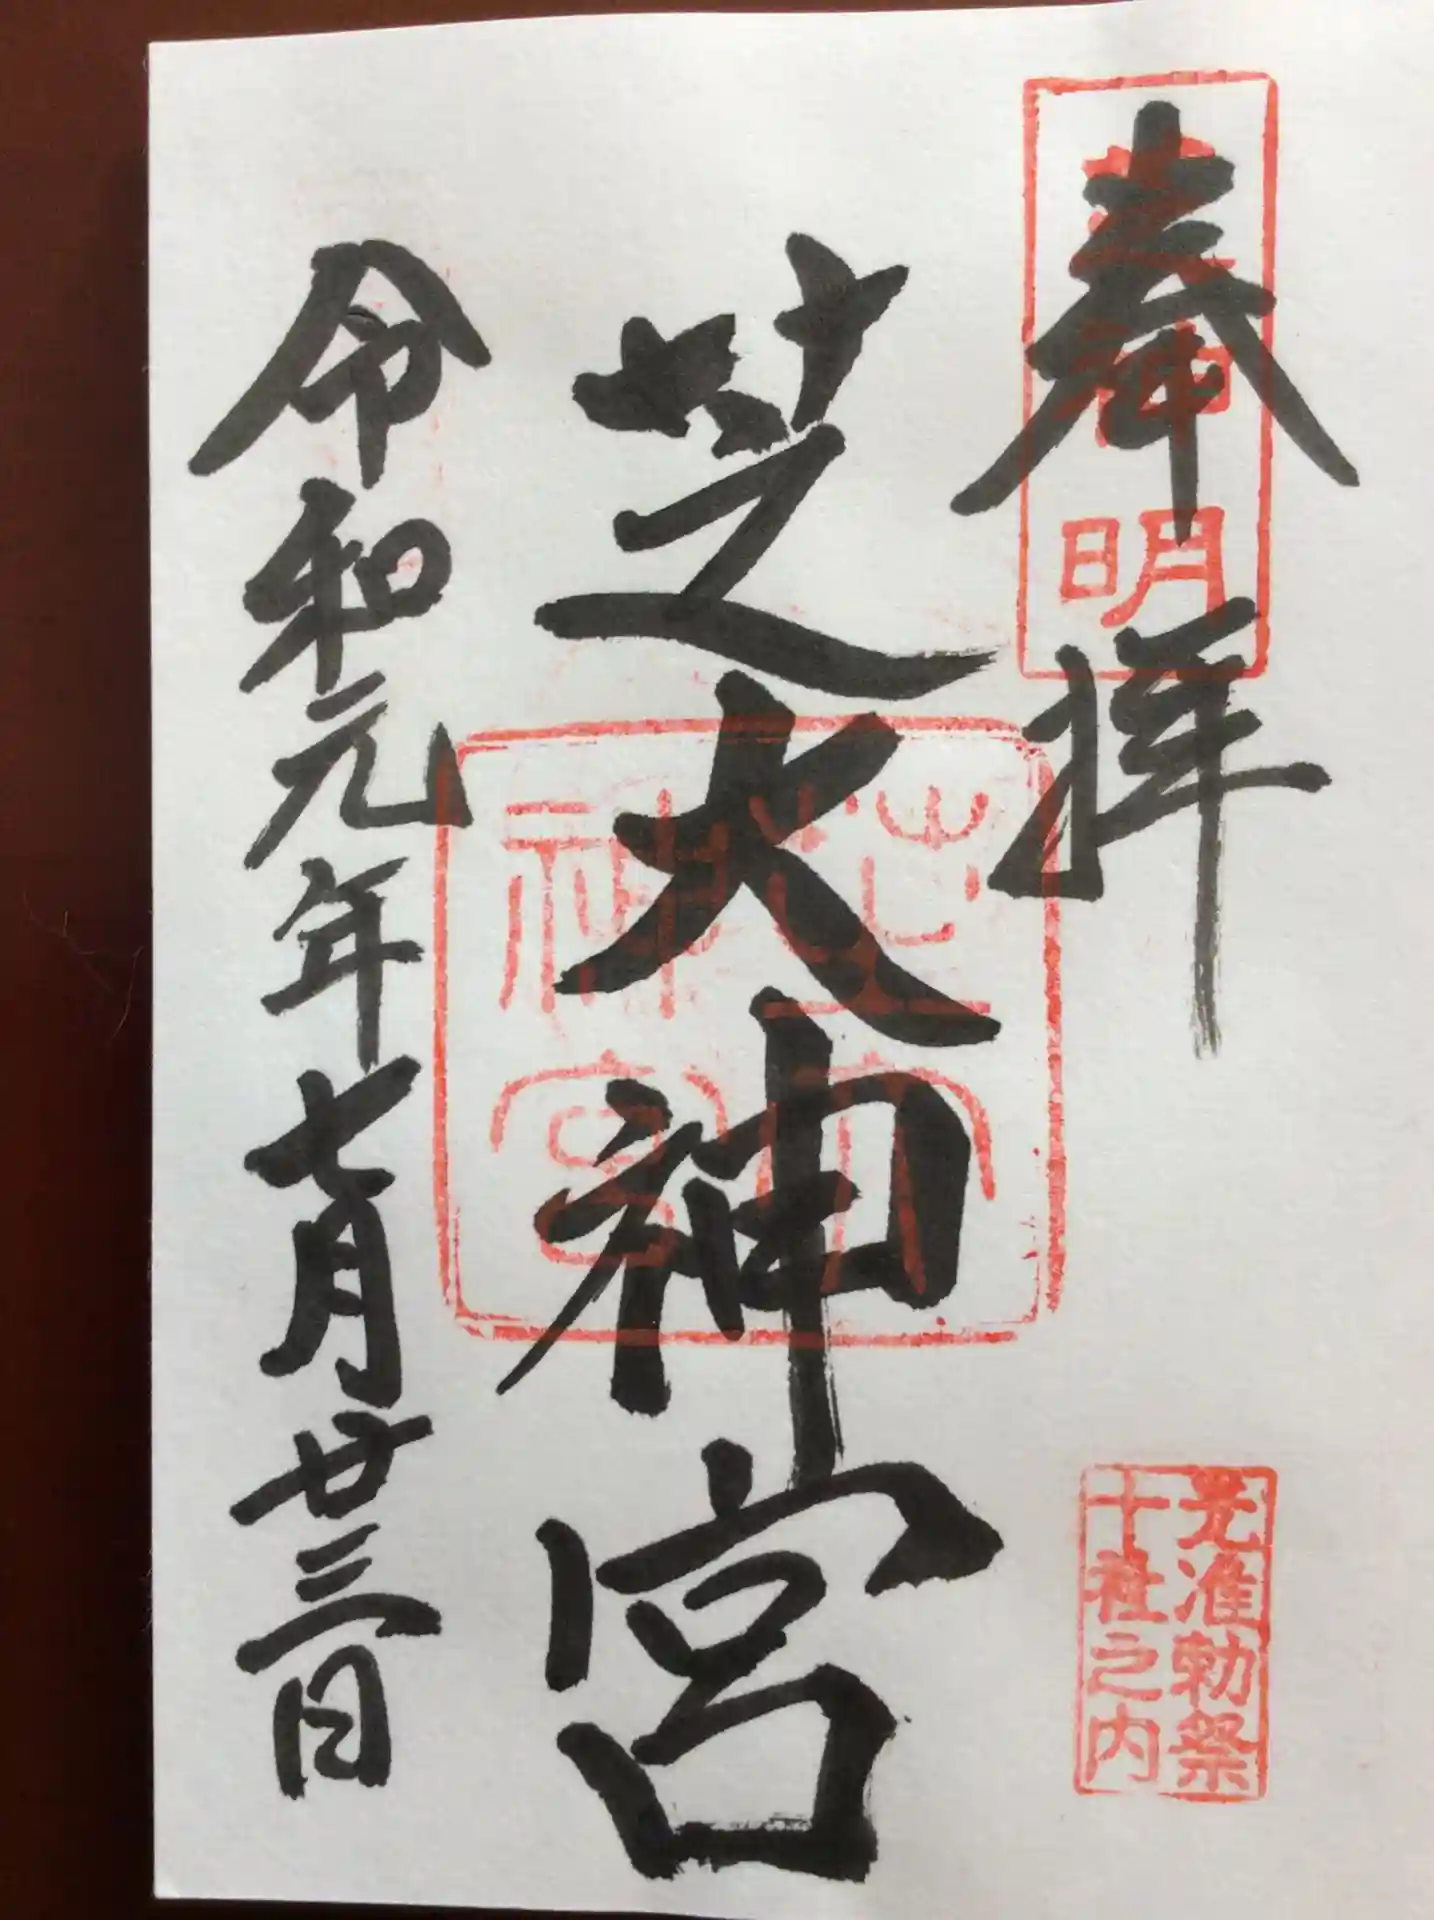 奉拝
芝神明
芝大神宮
芝大神宮
令和元年七月廿三日
元准勅祭
十社之内